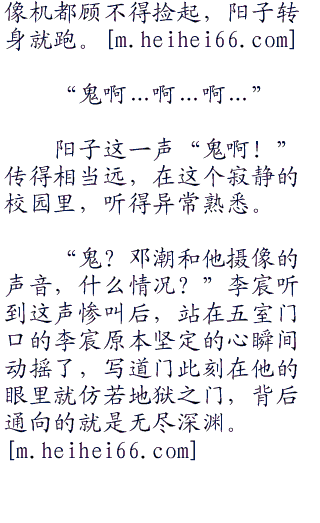 像机都顾不得捡起，阳子转
身就跑。[m.heihei66.com]
“鬼啊…啊…啊…”
阳子这一声“鬼啊！”
传得相当远，在这个寂静的
校园里，听得异常熟悉。
“鬼？邓潮和他摄像的
声音，什么情况？”李宸听
到这声惨叫后，站在五室门
口的李宸原本坚定的心瞬间
动摇了，写道门此刻在他的
眼里就仿若地狱之门，背后
通向的就是无尽深渊。
[m.heihei66.com]